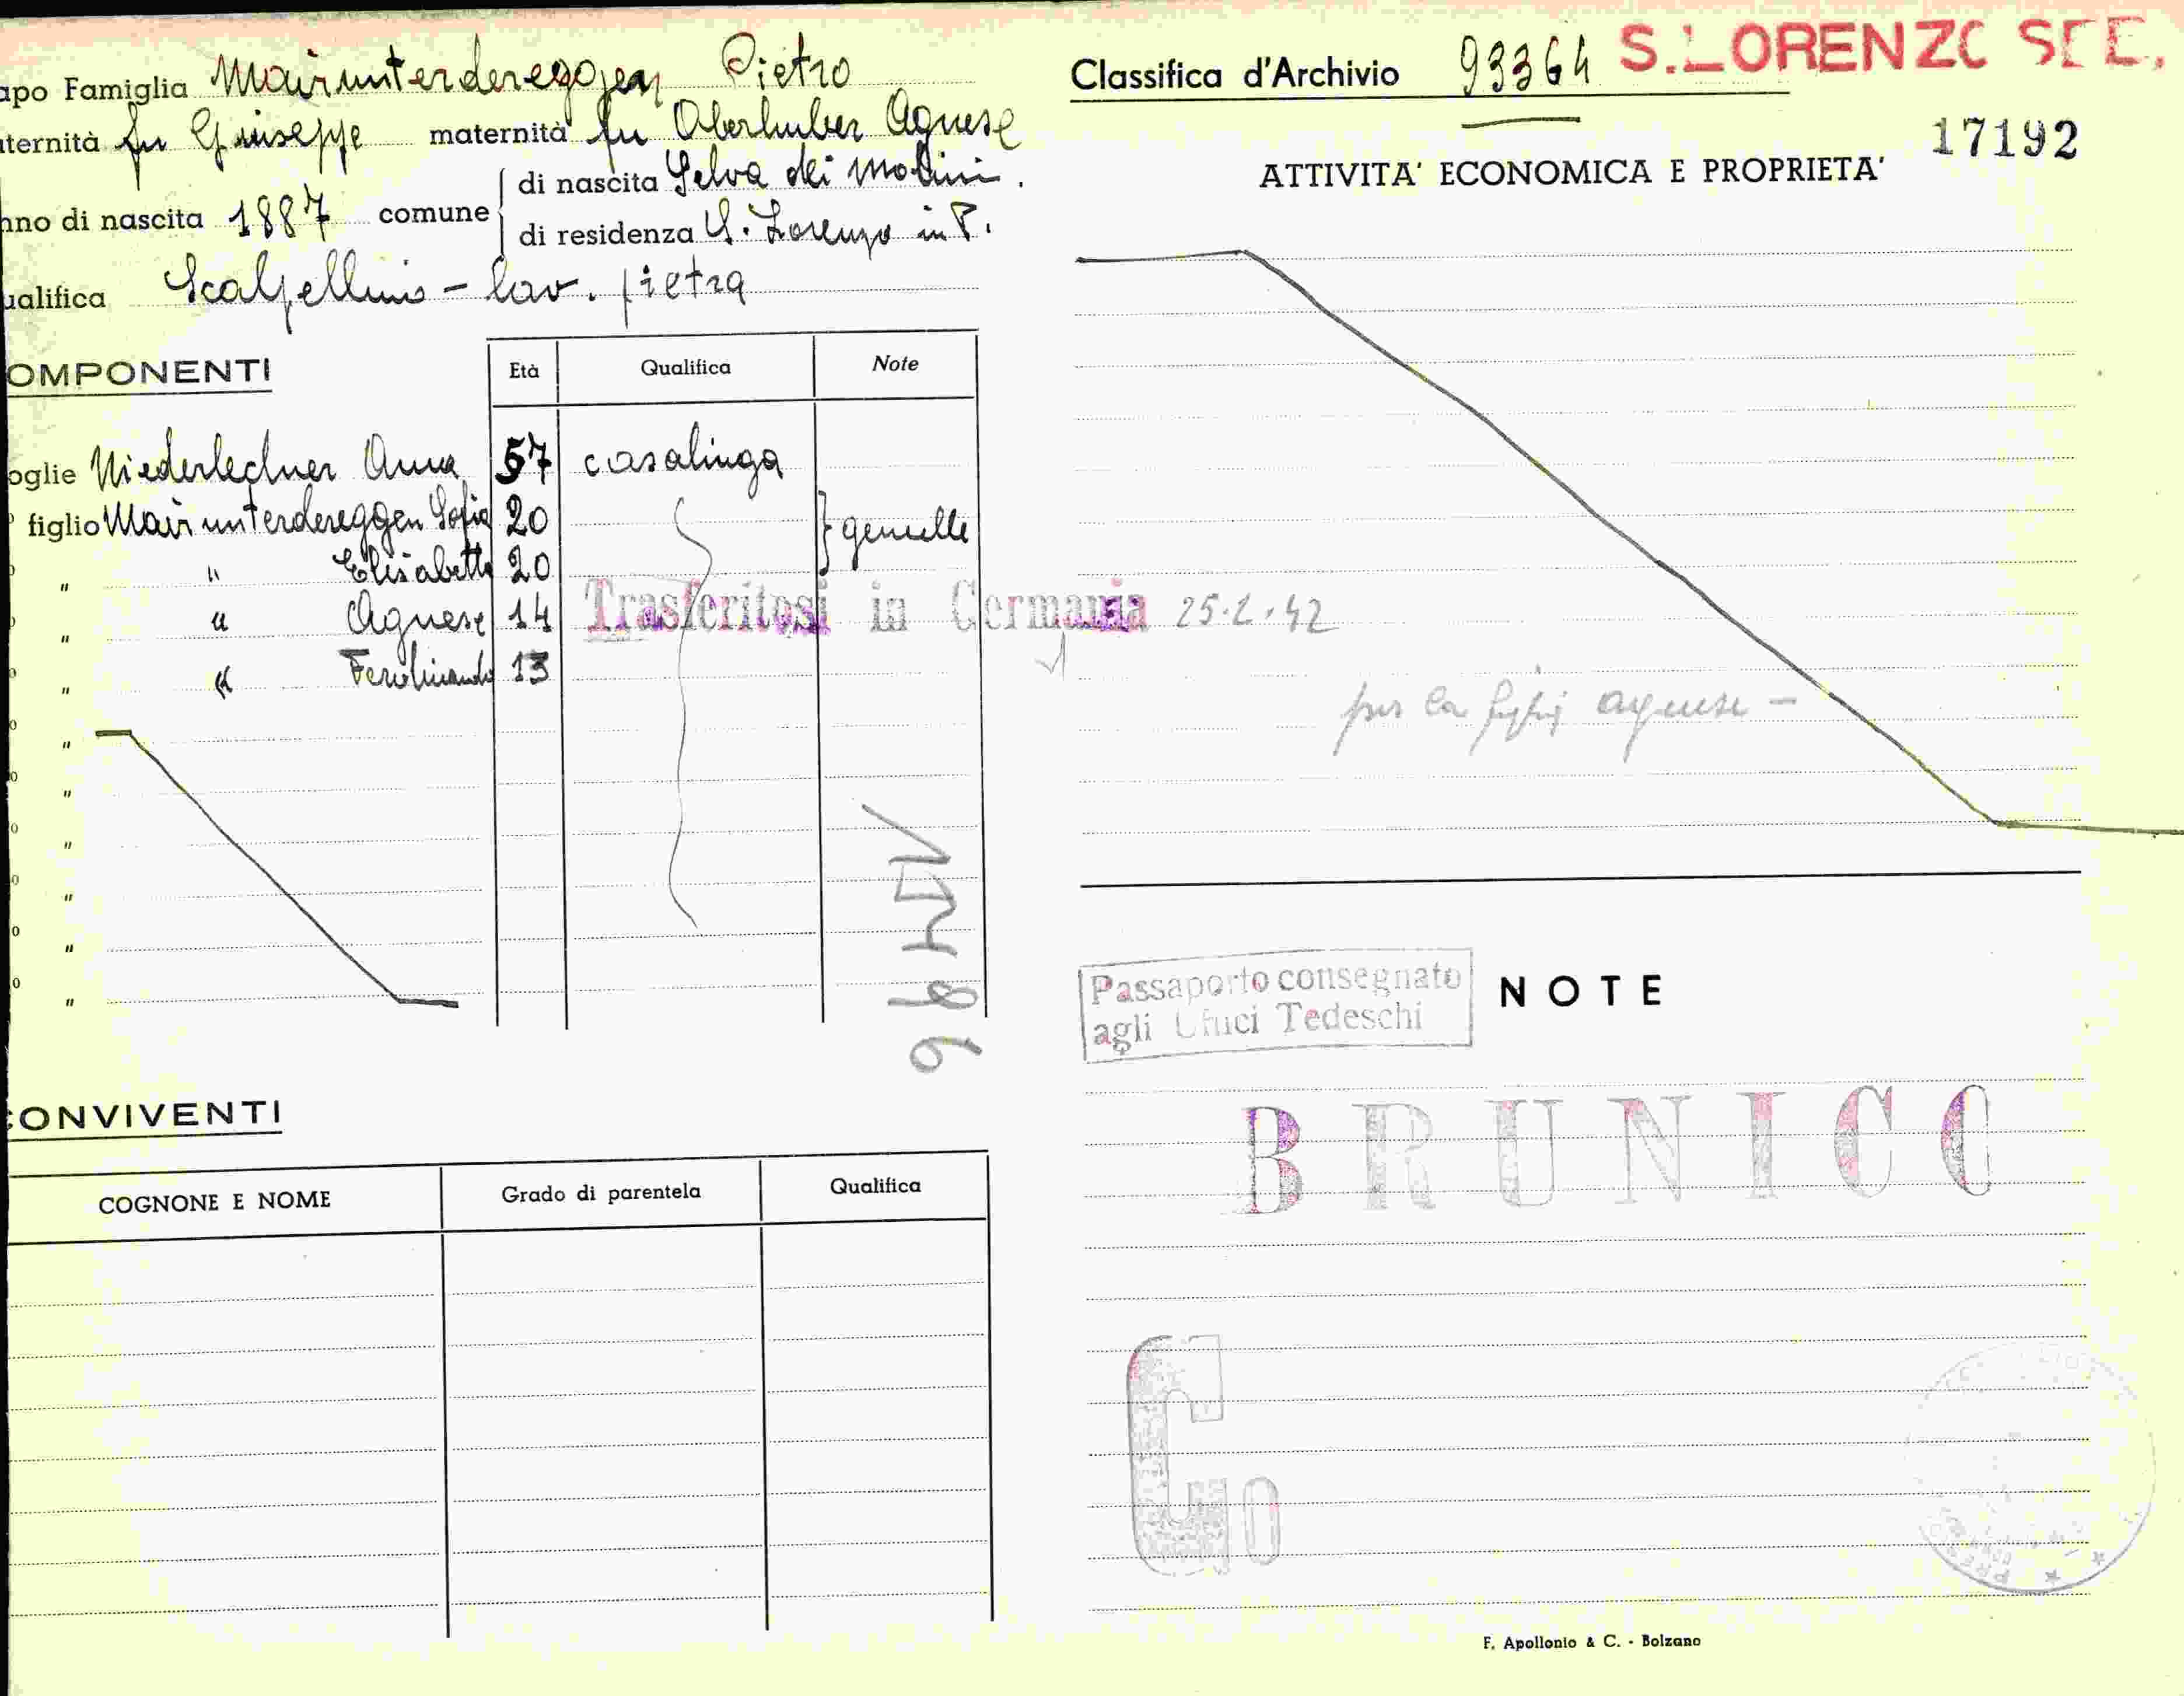 apo Famiglia Mairunterdereggen Pietro
ternità fu Giuseppe maternità fu Oberhuber Agnese
nno di nascita 1887 comune di nascita Selva dei Molini.
di residenza S. Lorenzo in P.
ualifica Scalpellino - lav. pietra
OMPONENTI
Età Qualifica Note
oglie Niederlechner Anna 57 casalinga
figlio Mairunterdereggen Sofia 20 } gemelle
" " Elisabetta 20
" " Agnese 14
" " Ferdinando 13
"
"
"
"
"
"
Trasferitosi in Germania 25.2.42
CONVIVENTI
COGNONE E NOME Grado di parentela Qualifica
Classifica d'Archivio 93364 S. LORENZO SEB.
17192
ATTIVITA' ECONOMICA E PROPRIETA'
per la figlia Agnese -
Passaporto consegnato
agli Uffici Tedeschi
NOTE
BRUNICO
F. Apollonio & C. - Bolzano